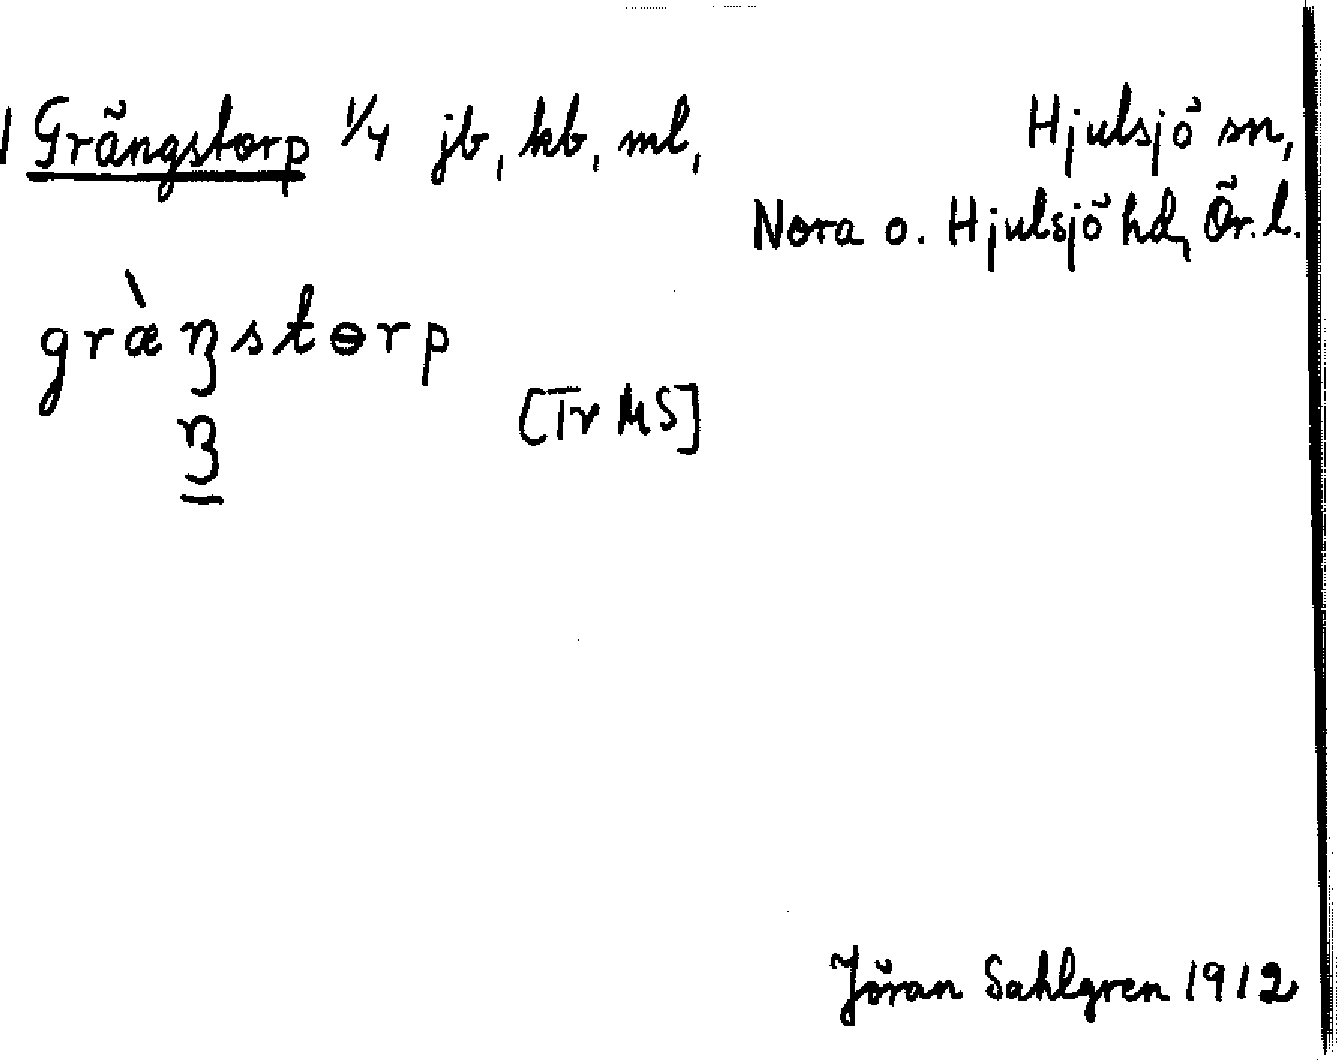 1 Grängstorp 1/4 jb, kb, ml,
Hjulsjö sn,
Nora o. Hjulsjö hd, Ör. l.
græ̀ŋstɵrp
ŋ
[Tr MS]
Jöran Sahlgren 1912